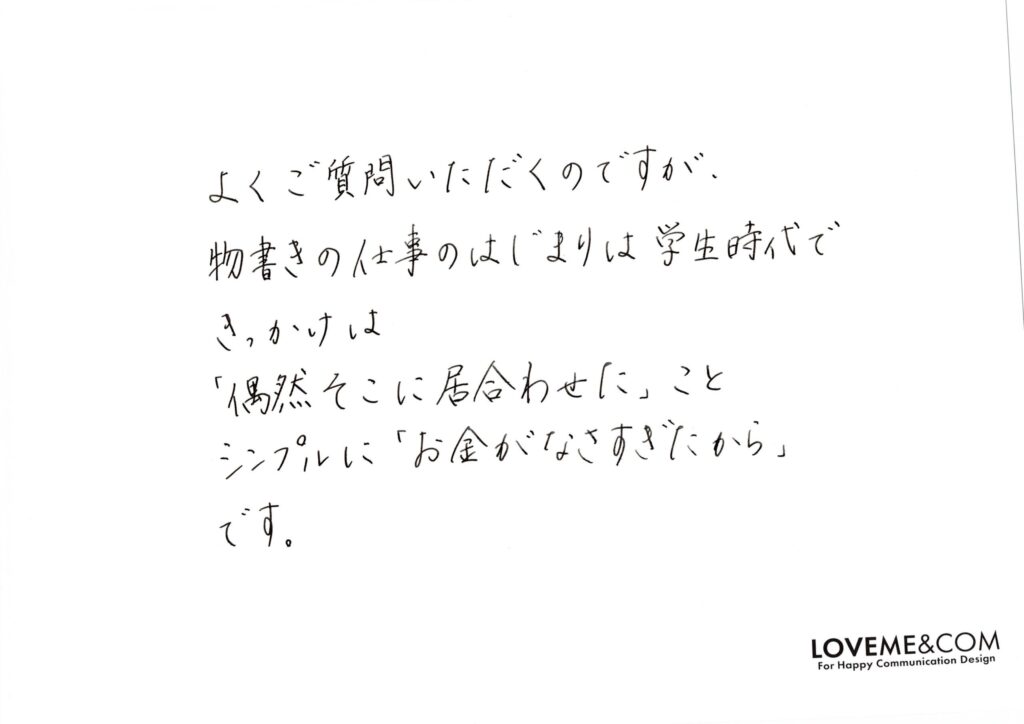 よくご質問いただくのですが、
物書きの仕事のはじまりは学生時代で
きっかけは
「偶然そこに居合わせた」こと
シンプルに「お金がなさすぎたから」
です。
LOVEME&COM
For Happy Communication Design